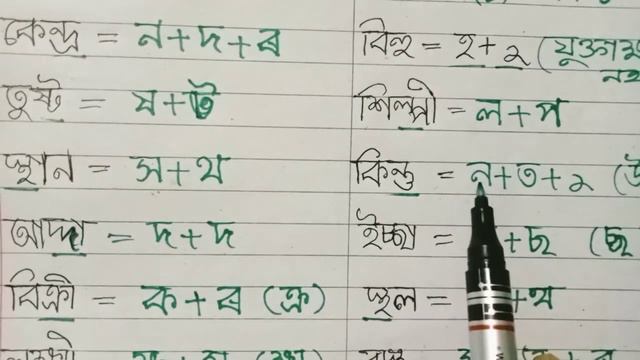 কেন্দ্ৰ = ন+দ+ৰ
তুষ্ট = ষ+ট
স্থান = স+থ
আদ্দা = দ+দ
বিক্ৰী = ক+ৰ (ক্ৰ)
বিহু = হ+ু
শিল্পী = ল+প
কিন্তু = ন+ত+ু (উ
ইচ্ছা = +ছ (ছ
স্থূল = +থ